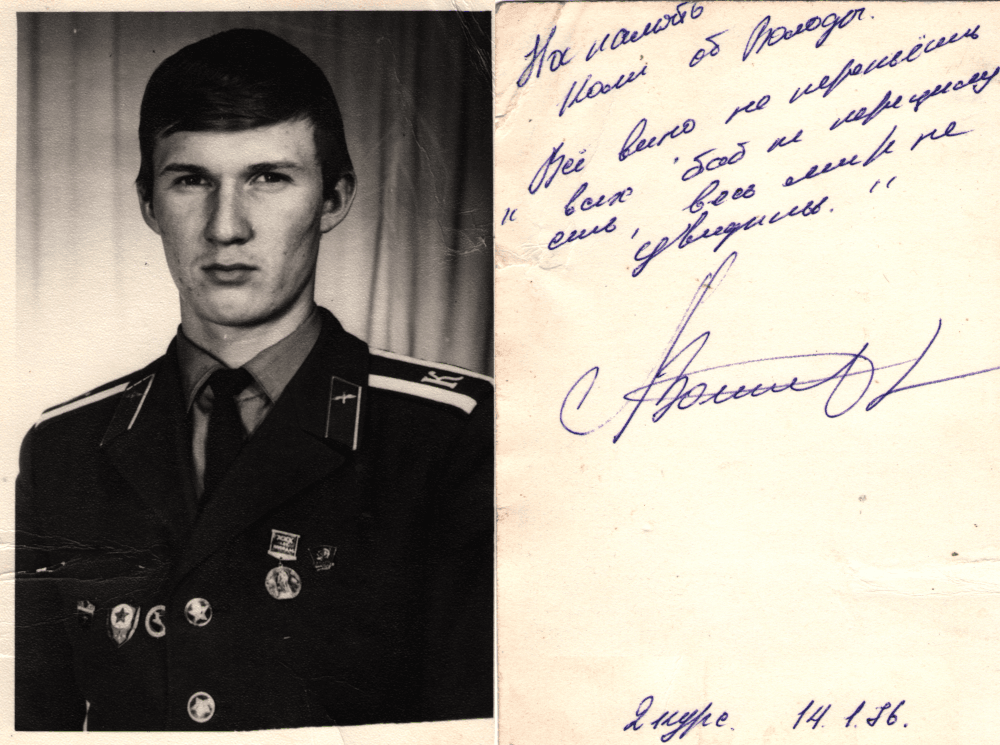 К
На память
Коли об Володи.
Всё вино не перепьёшь
" всех баб не перецелу
ешь, весь мир не
увидишь. "
2 курс. 14.1.76.